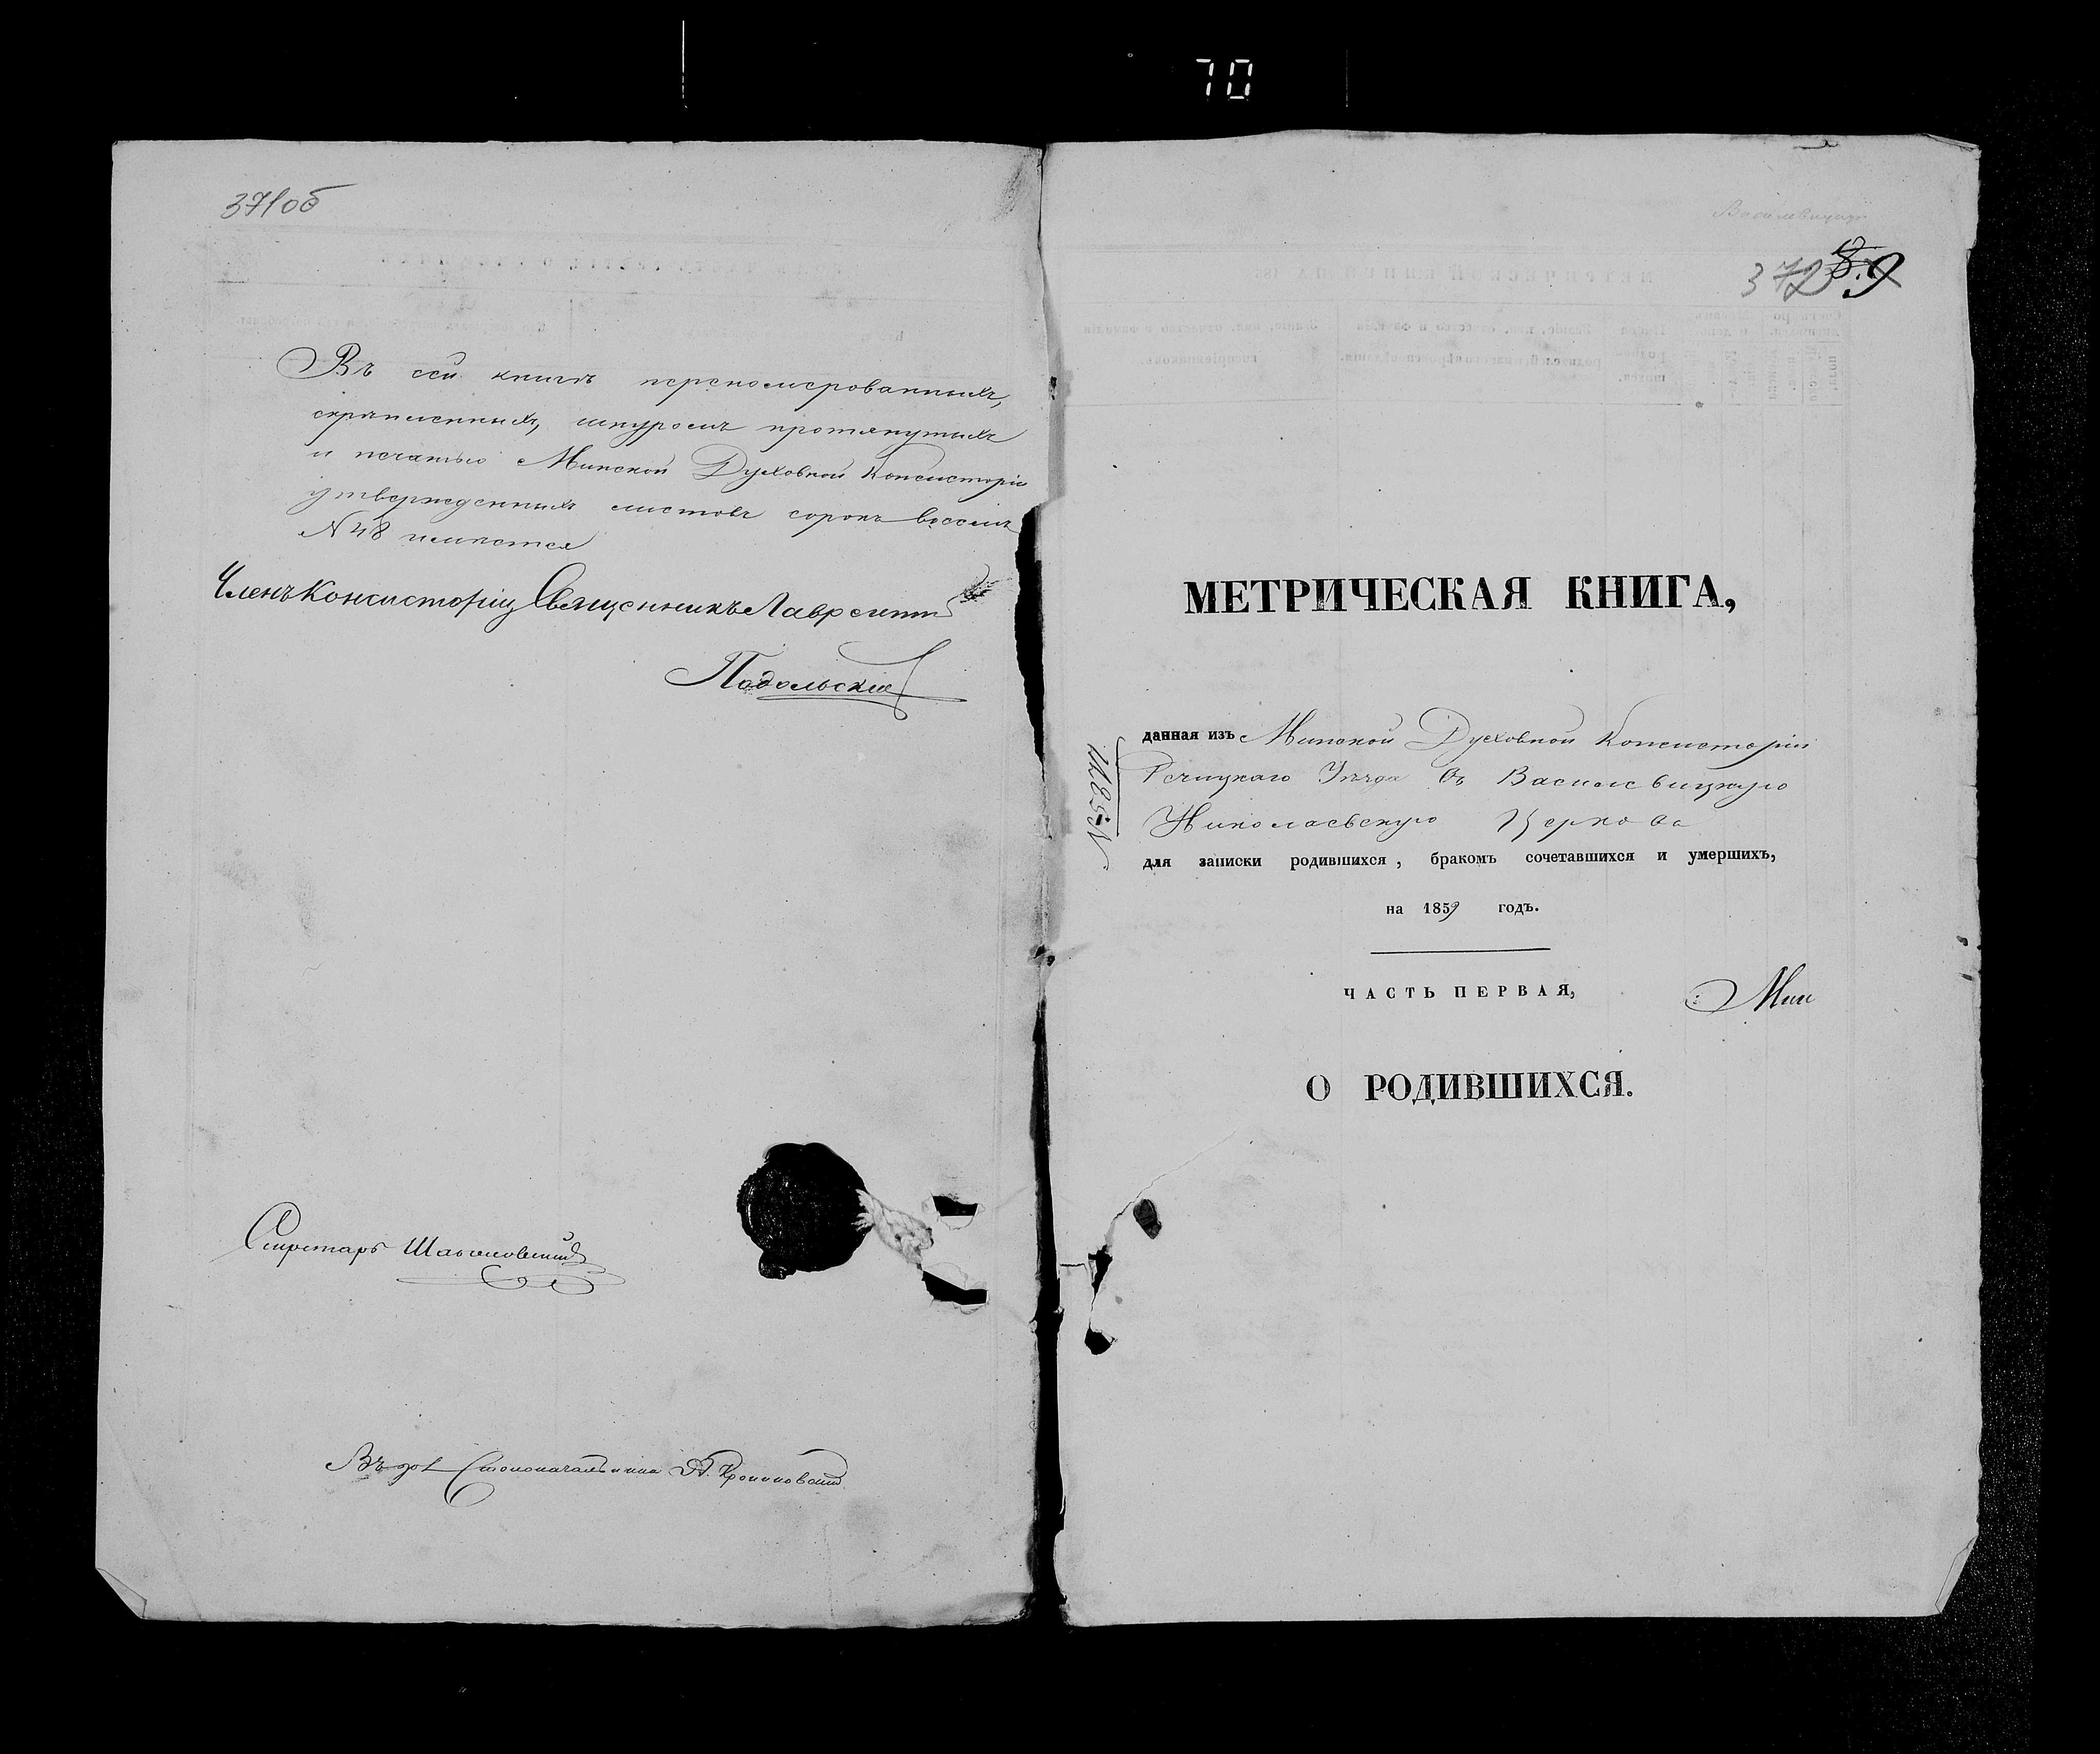 70
371об
Въ сей книгѣ переномерованныхъ,
скрѣпленныхъ, шнуромъ протянутыхъ
и печатью Минской Духовной Консисторіи
утвержденныхъ листовъ сорокъ восемь
N 48 имѣется
Членъ Консисторіи Священникъ Лаврентій
Подольскій
Секретарь
Въ дол. Столоначальника А.
Василевицкая
372
МЕТРИЧЕСКАЯ КНИГА,
данная изъ Минской Духовной Консисторіи
Речицкаго Уѣзда въ Василевицкую
Николаевскую Церковь
для записки родившихся, бракомъ сочетавшихся и умершихъ,
на 1859 годъ.
ЧАСТЬ ПЕРВАЯ,
Мин
О РОДИВШИХСЯ.